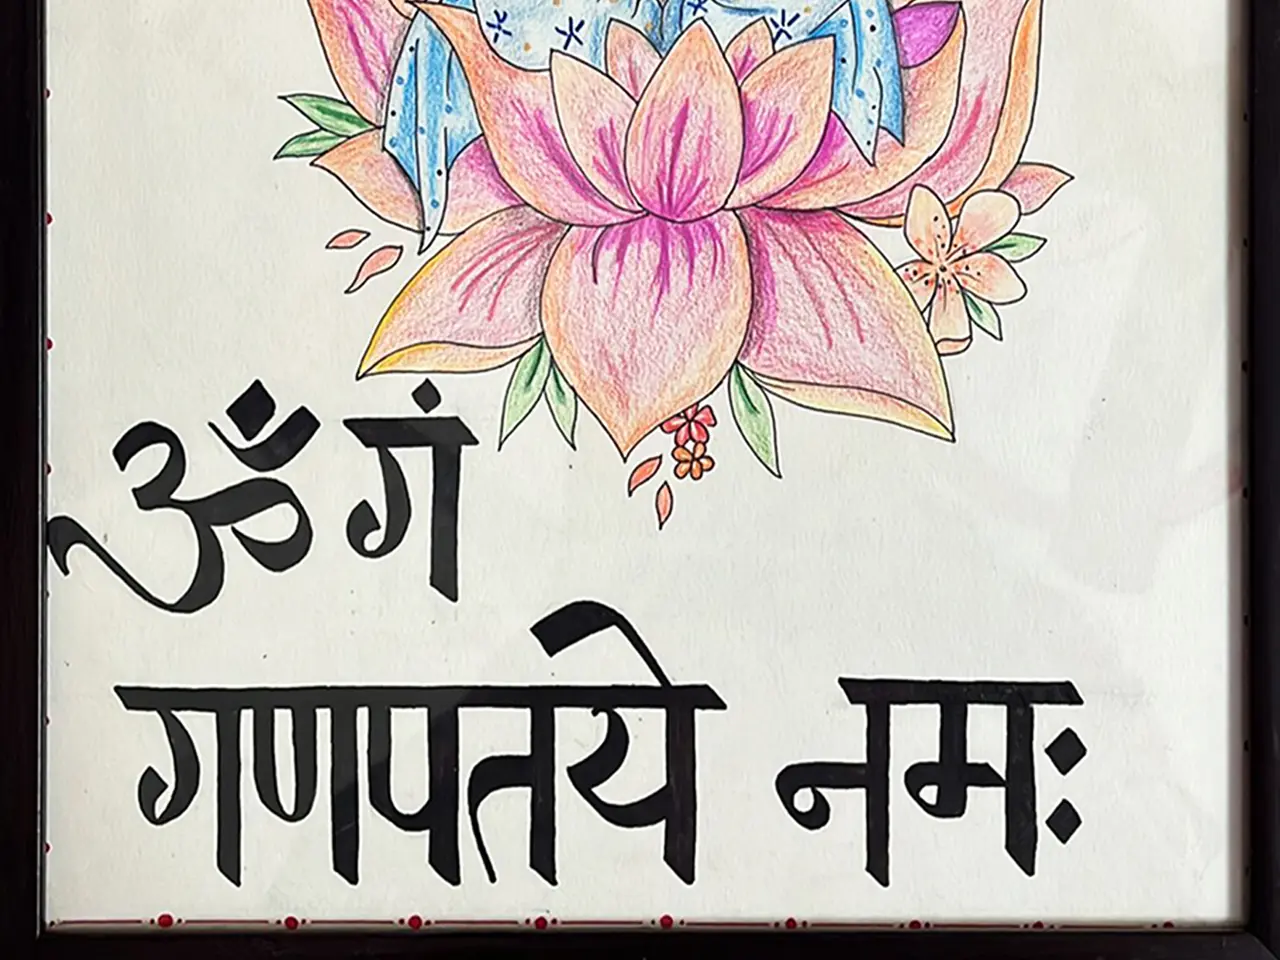 ॐ गं
गणपतये नमः